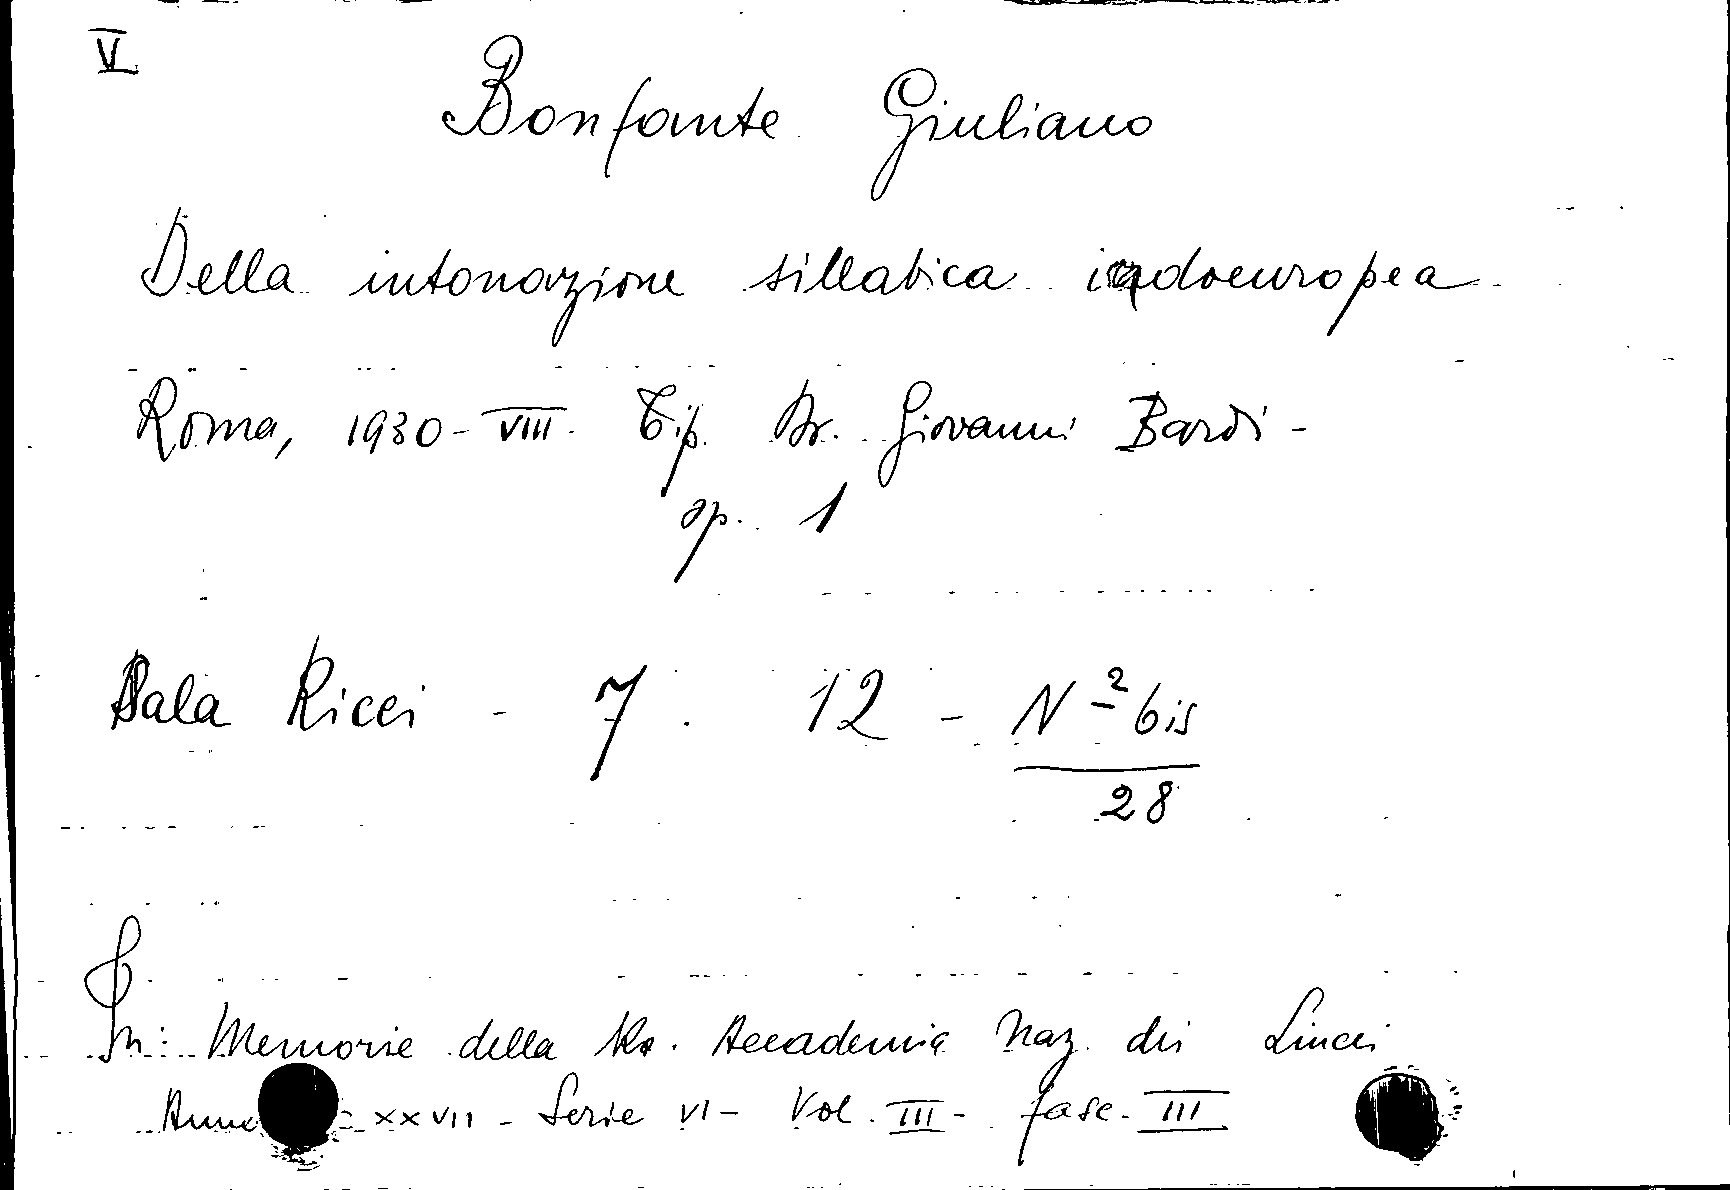 V
Bonfante Giuliano
Della intonazione sillabica indoeuropea
Roma, 1930-VIII. Tip. Dr. Giovanni Bardi -
op. 1
Sala Ricci - 7. 12 - N 2 bis
28
In: Memorie della R. Accademia Naz. dei Lincei
Anno XXVII - Serie VI - Vol. III - fasc. III